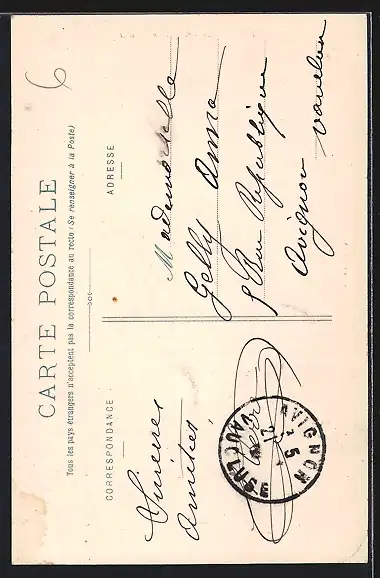 6
CARTE POSTALE
Tous les pays étrangers n'acceptent pas la correspondance au recto (Se renseigner à la Poste)
CORRESPONDANCE
Sincères
Amitiés
AVIGNON
VAUCLUSE
ADRESSE
Mademoiselle
Gelly Anna
5 Rue République
Avignon
Vaucluse